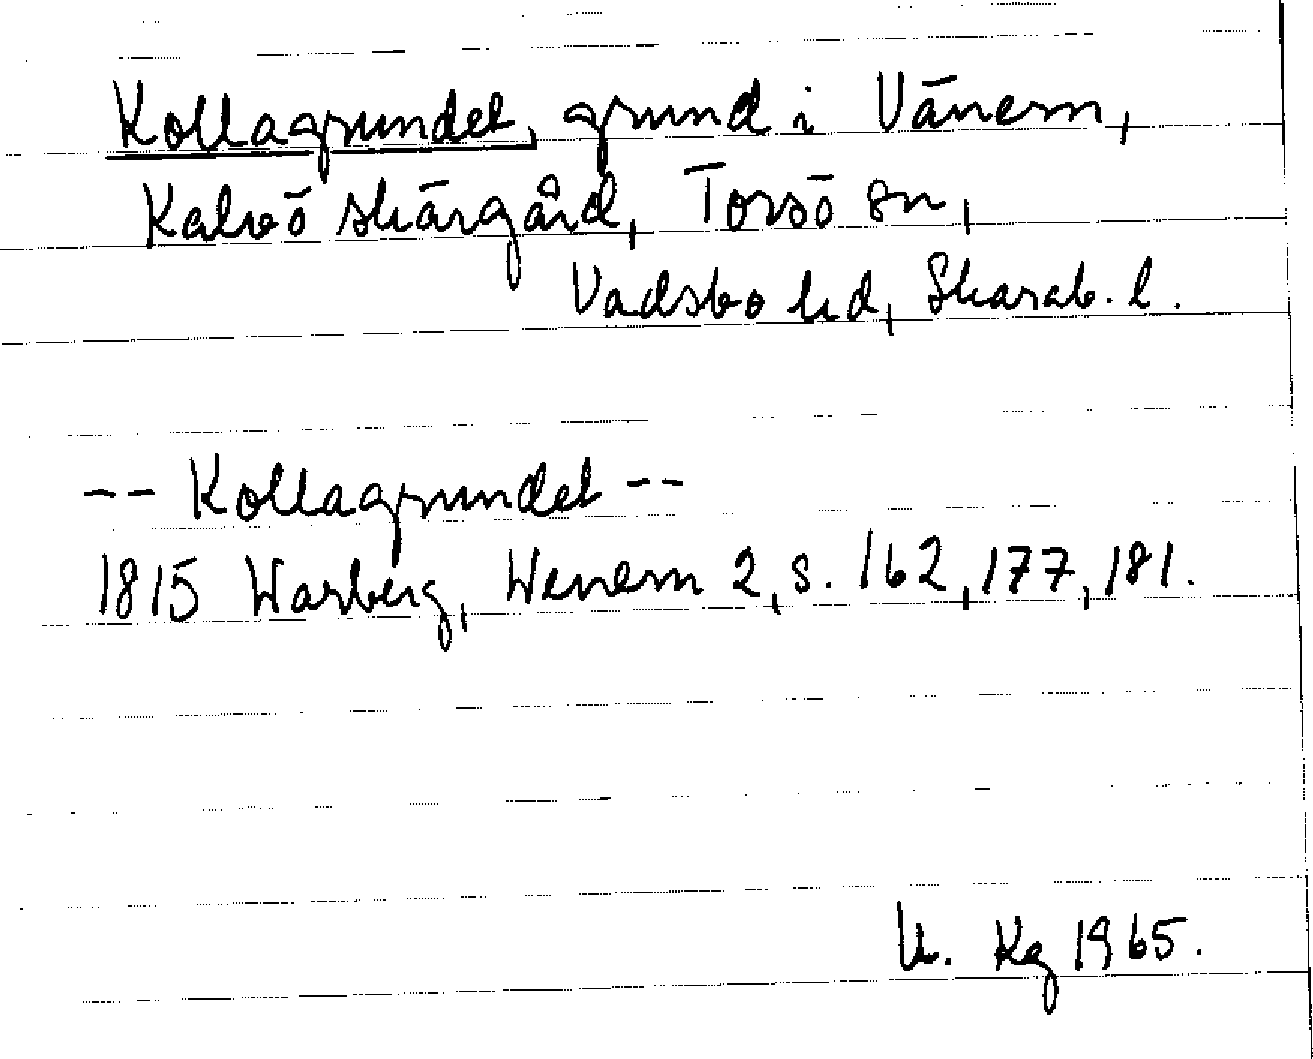 Kollagrundet, grund i Vänern,
Kalvö skärgård, Torsö sn,
Vadsbo hd, Skarab. l.
-- Kollagrundet --
1815 Warberg, Wenern 2, s. 162, 177, 181.
Kg 1965.